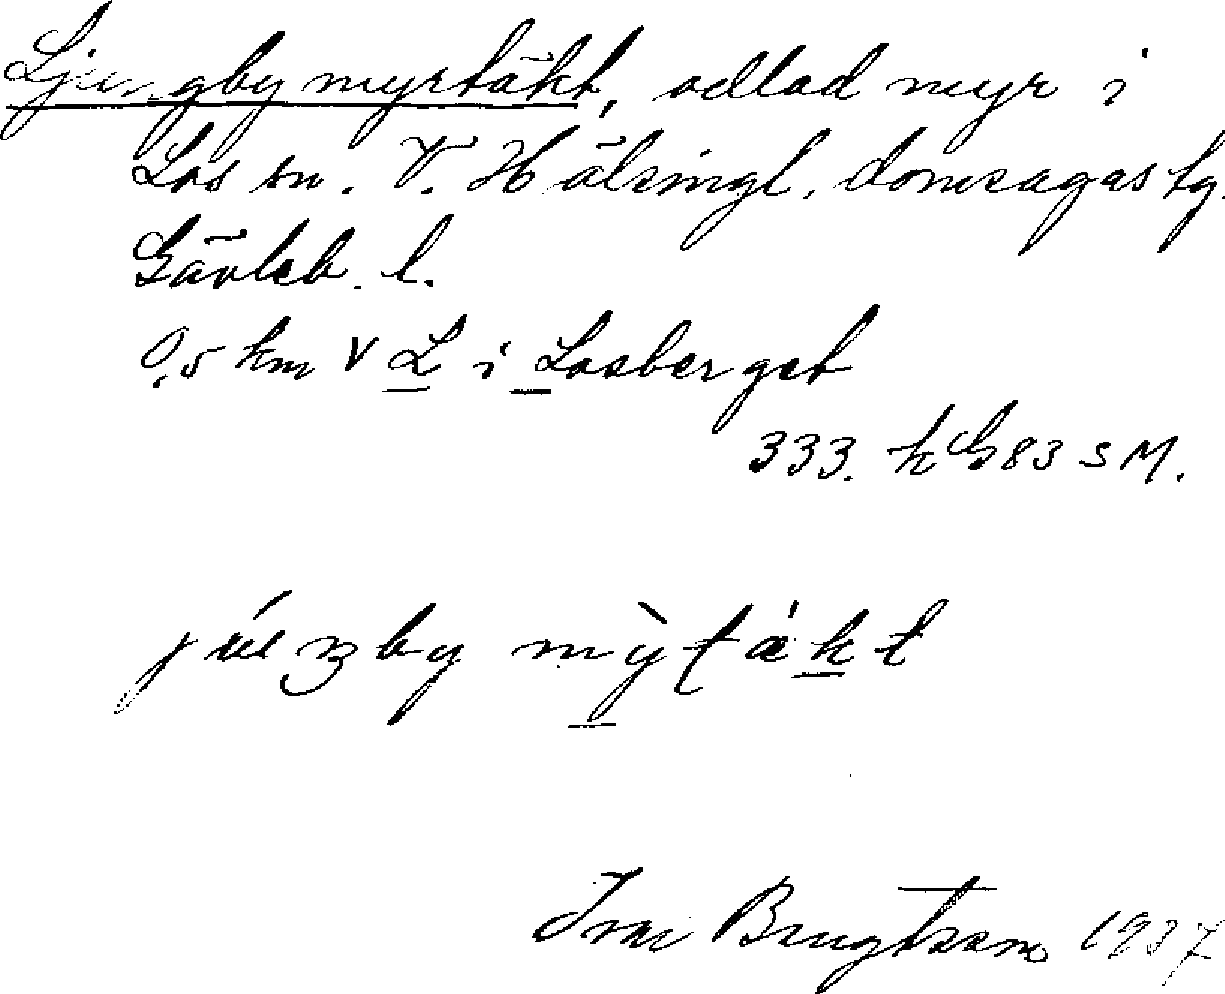 Ljungby myrtäkt, odlad myr i
Los sn. V. Hälsingl. domsagas tg.
Gävleb. l.
0,5 km V L i Losberget
333. k G83 S M.
mỳtákt
Bengtsson 1937